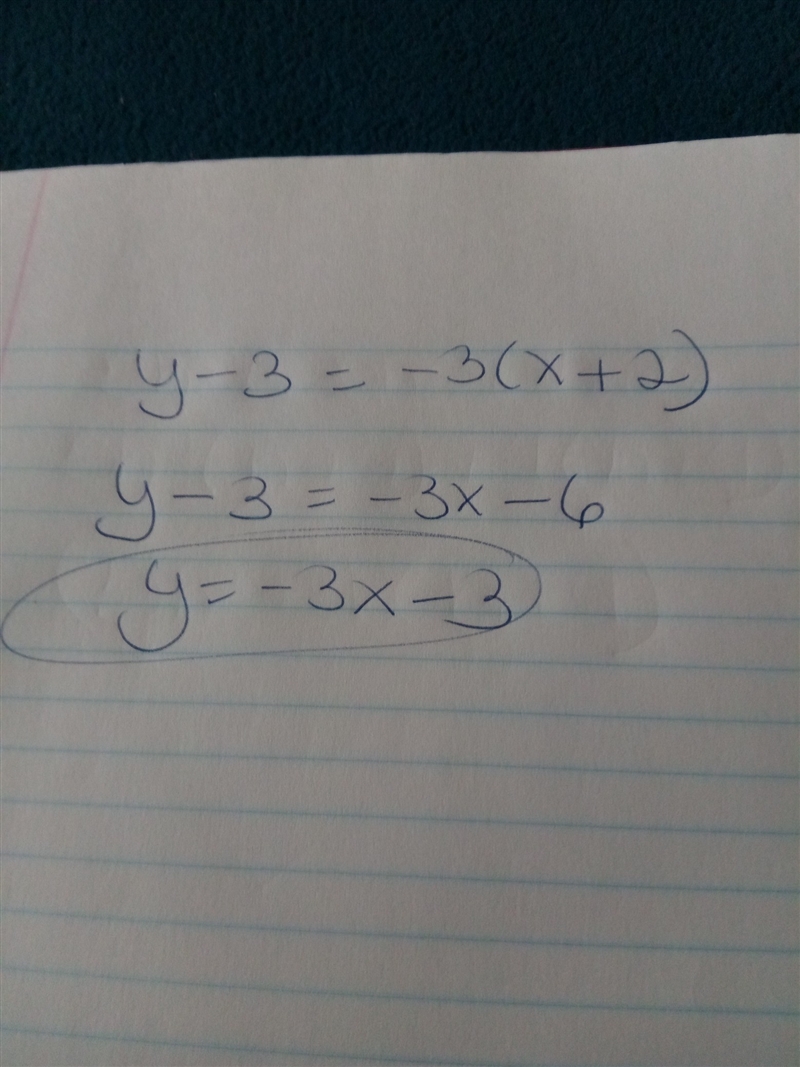 y - 3 = -3(x + 2)
y - 3 = -3x - 6
y = -3x - 3